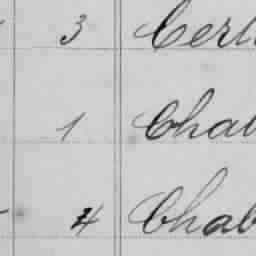 3 Cert
1 Chat
4 Chab